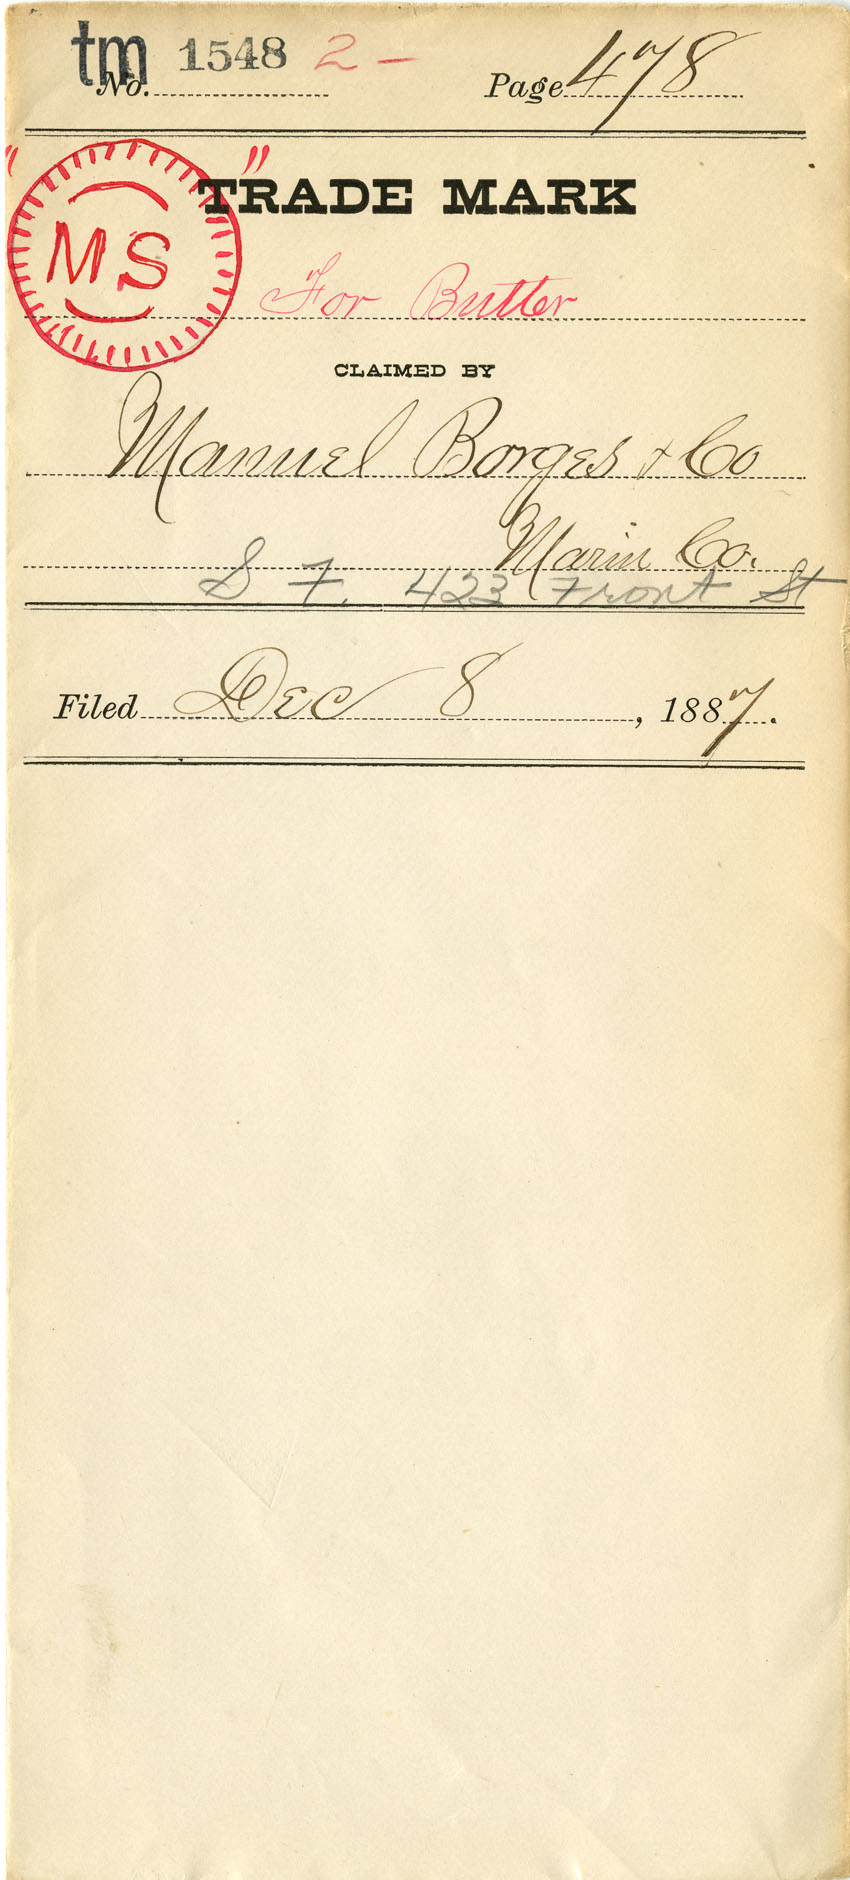 tm 1548 2 -
No. Page 478
" "
TRADE MARK
MS
For Butter
CLAIMED BY
Manuel Borges & Co
Marin Co.
S F. 423 Front St
Filed Dec 8, 1887.